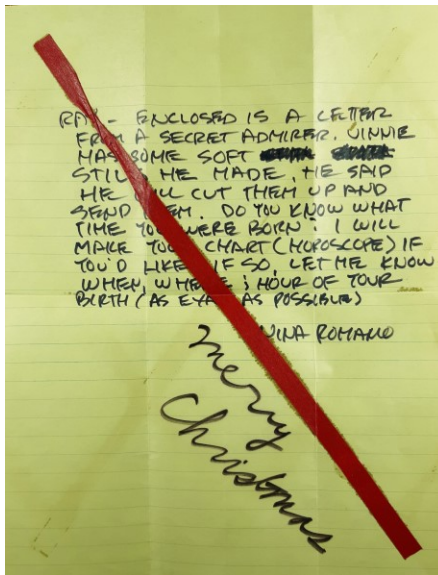 RAY - ENCLOSED IS A LETTER
FROM A SECRET ADMIRER. VINNIE
HAS SOME SOFT
STILLS HE MADE, HE SAID
HE WILL CUT THEM UP AND
SEND THEM. DO YOU KNOW WHAT
TIME YOU WERE BORN? I WILL
MAKE YOUR CHART (HOROSCOPE) IF
YOU'D LIKE. IF SO, LET ME KNOW
WHEN, WHERE & HOUR OF YOUR
BIRTH (AS EXACT AS POSSIBLE)
NINA ROMANO
Merry
Christmas